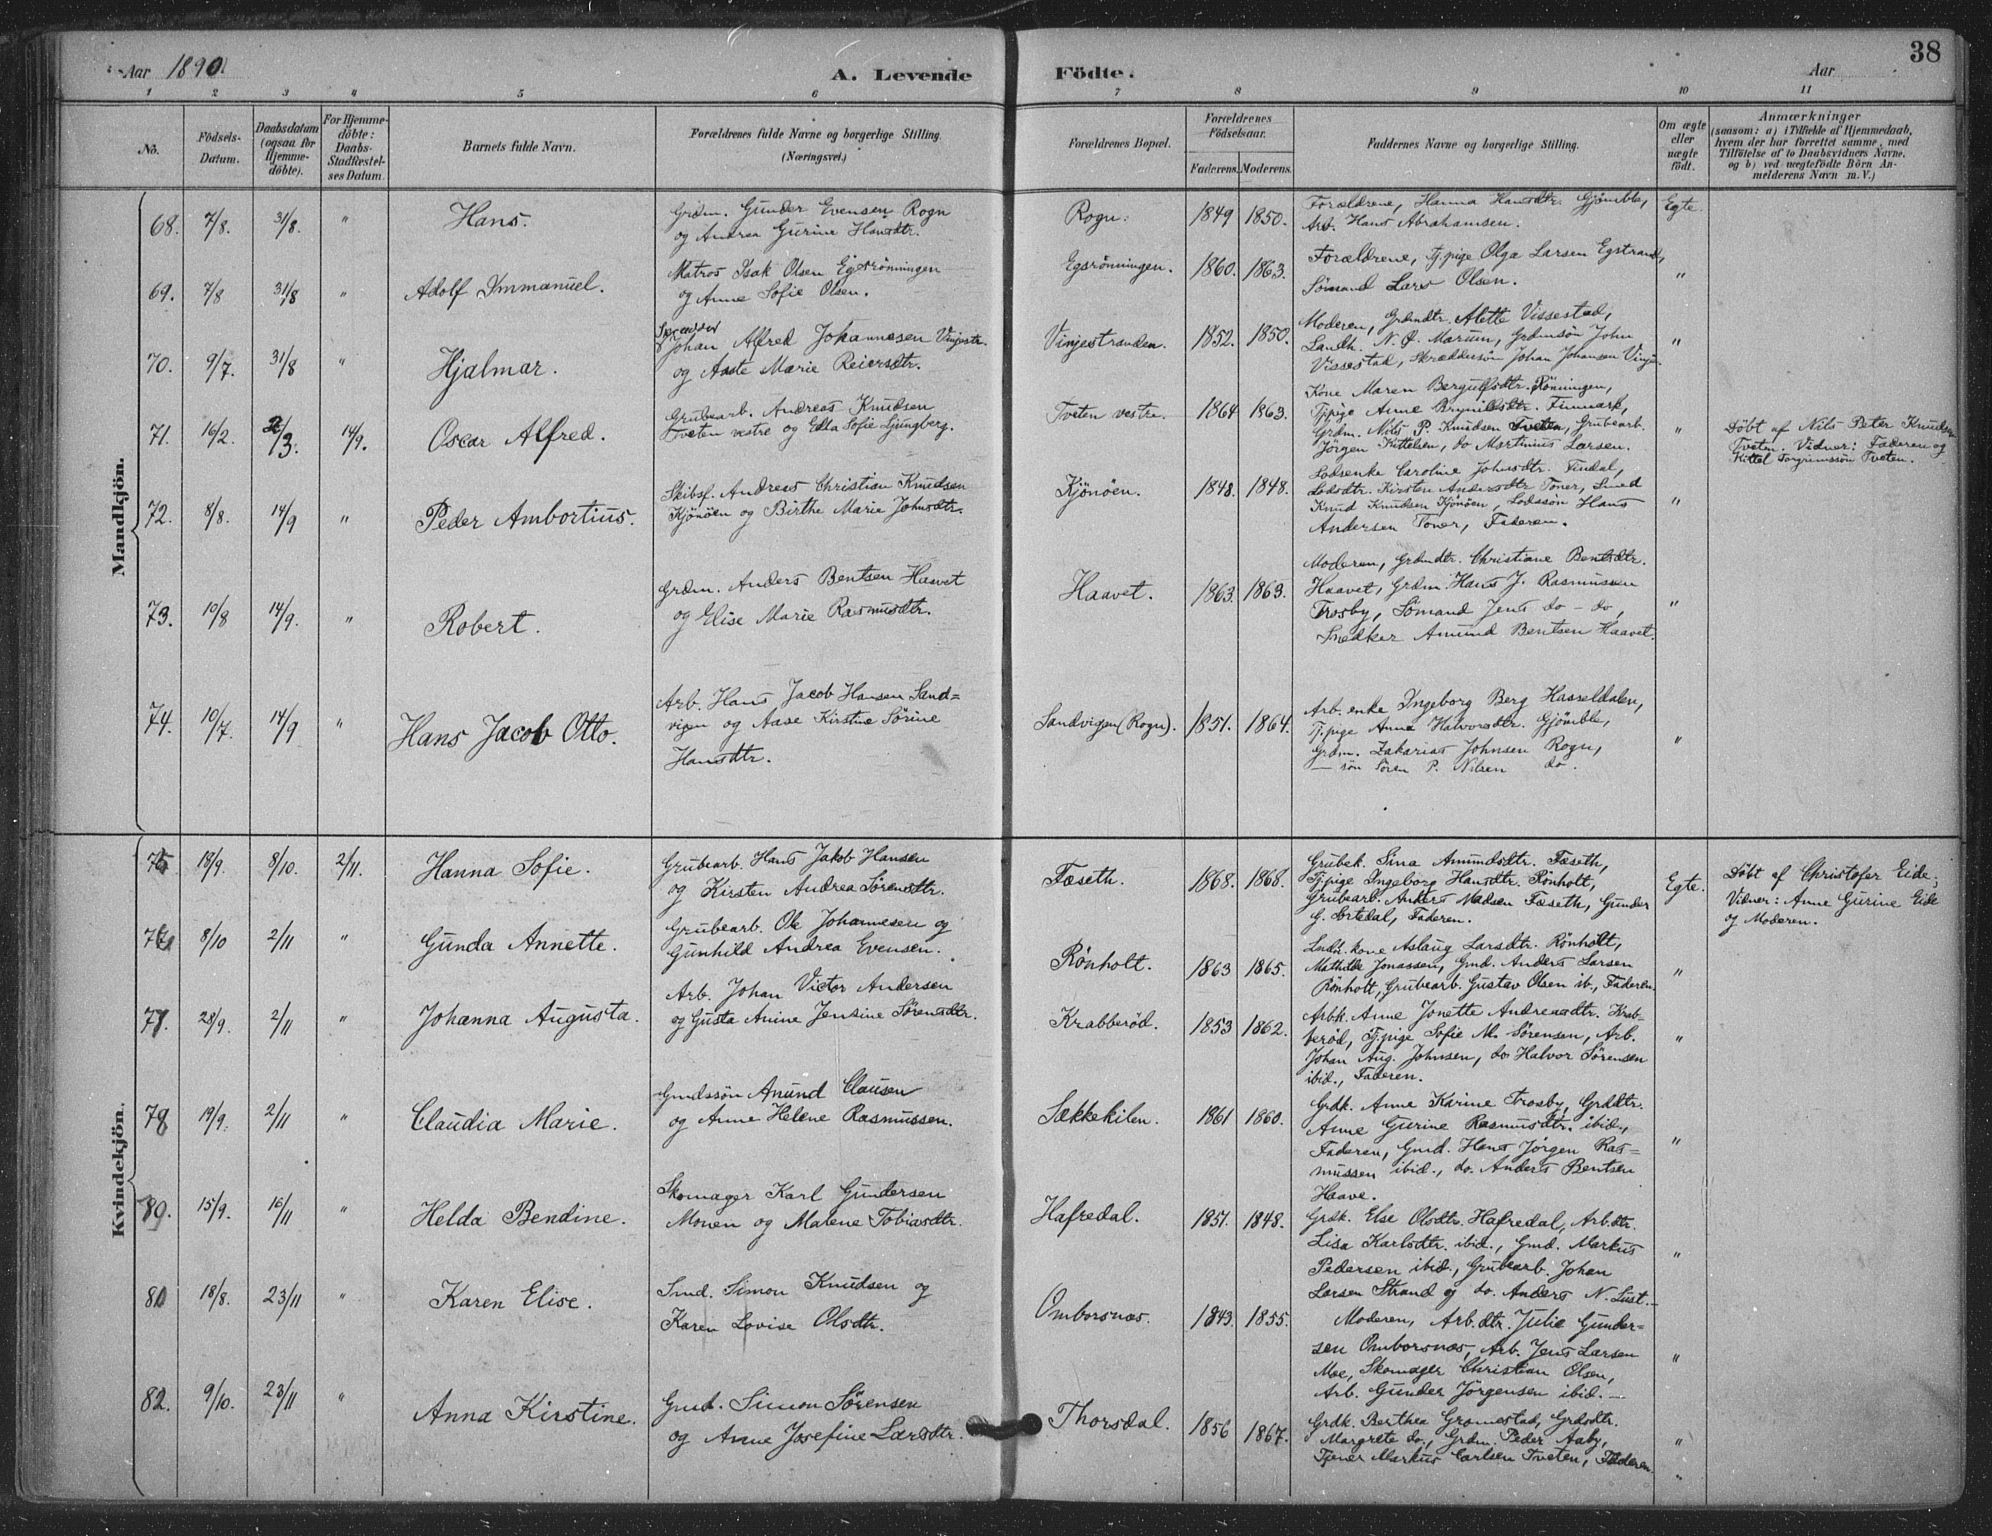 Aar 1890.
A. Levende Födte.
Aar
38
1 2 3 4 5 6 7 8 9 10 11
No.
Födsels-Datum.
Daabsdatum (ogsaa for Hjemmedöbte).
For Hjemmedöbte: Daabs-Stadfæstelses Datum.
Barnets fulde Navn.
Forældrenes fulde Navne og borgerlige Stilling. (Næringsvei.)
Forældrenes Bopæl.
Forældrenes Födselsaar.
Faderens. Moderens.
Faddernes Navne og borgerlige Stilling.
Om ægte eller uægte födt.
Anmærkninger
(saasom: a) i Tilfælde af Hjemmedaab,
hvem der har forrettet samme, med
Tilföielse af to Daabsvidners Navne,
og b) ved uægtefödte Börn An-
melderens Navn m. V.)
Mandkjön.
68. 7/8. 31/8. " Hans.
Grdm. Gunder Evensen Rogn
og Andrea Gurine Hansdtr.
Rogn. 1849 1850.
Forældrene, Hanna Hansdtr. Gjömble,
Arb. Hans Abrahamsen.
Egte.
69. 7/8 31/8 " Adolf Immanuel.
Matros Isak Olsen Egsrönningen
og Anne Sofie Olsen.
Egsrönningen. 1860. 1863.
Forældrene, Tj.pige Olga Larsen Egstrand,
Sömand Lars Olsen.
"
70. 9/7. 31/8 " Hjalmar.
Johan Alfred Johannesen Vinjestr.
og Aaste Marie Reiersdtr.
Vinjestranden. 1852. 1850.
Moderen, Grdmdtr. Alette Vissestad,
Landh. N. O. Marum, Grdmsön John
Vissestad, Skræddersön Johan Johansen Vinje.
"
71. 16/2. /3. 14/9. Oscar Alfred.
Grubearb. Andreas Knudsen
Tveten vestre og Edla Sofie Ljungberg.
Tveten vestre. 1864 1863.
Kone Maren Bergulfsdtr. Röningen,
Tj.pige Anne Brynildsdtr. Finmark,
Grdm. Nils P. Knudsen Tveten, Grubearb.
Jörgen Kittelsen, do Marthinius Larsen.
"
Döbt af Nils Peter Knudsen
Tveten. Vidner: Faderen og
Kittel Torgrimssön Tveten.
72. 8/8. 14/9 " Peder Ambortius.
Skibsf. Andreas Christian Knudsen
Kjönöen og Birthe Marie Johnsdtr.
Kjönöen. 1848. 1848.
Lodsenke Caroline Johnsdtr. Findal,
Lodsdtr. Kirsten Andersdtr Toner, Smed
Knud Knudsen Kjönöen, Lodssön Hans
Andersen Toner, Faderen.
"
73. 10/8 14/9. " Robert.
Grdm. Anders Bentsen Haavet
og Elise Marie Rasmusdtr.
Haavet. 1863. 1863.
Moderen, Grdmdtr. Christiane Bentsdtr.
Haavet, Grdm. Hans J. Rasmussen
Trosby, Sömand Jens do - do,
Snedker Amund Bentsen Haavet.
"
74. 10/7. 14/9 " Hans Jacob Otto.
Arb. Hans Jacob Hansen Sand=
vigen og Aase Kirstine Sörine
Hansdtr.
Sandvigen (Rogn). 1851. 1864.
Arb. enke Ingeborg Berg Hasseldalen,
Tj.pige Anne Halvorsdtr. Gjömble,
Grdm. Zakarias Johnsen Rogn,
— sön Sören P. Nilsen do.
"
Kvindekjön.
75 18/9. 8/10. 2/11. Hanna Sofie.
Grubearb. Hans Jakob Hansen
og Kirsten Andrea Sörensdtr.
Fæseth. 1868. 1868.
Grubek. Sina Amundsdtr. Fæseth,
Tj.pige Ingeborg Hansdtr. Rönholt,
Grubearb. Anders Madsen Fæseth, Gunder
G. Örtedal, Faderen.
Egte.
Döbt af Christofer Eide;
Vidner: Anne Gurine Eide
og Moderen.
8/10 2/11 " Gunda Annette.
Grubearb. Ole Johannesen og
Gunhild Andrea Evensen.
Rönholt. 1863 1865.
kone Aslaug Larsdtr. Rönholt,
Mathilde Jonassen, Gmd. Anders Larsen
Rönholt, Grubearb. Gustav Olsen ib., Faderen.
"
28/9. 2/11 " Johanna Augusta.
Arb. Johan Victor Andersen
og Gusta Anine Jensine Sörensdtr.
Krabberöd. 1853 1862.
Arbk. Anne Jonette Andreasdtr. Krab-
beröd, Tj.pige Sofie M. Sörensen, Arb.
Johan Aug. Johnsen, do. Halvor Sörensen
ibid., Faderen.
"
78 19/9. 2/11 " Claudia Marie.
Gmdssön Anund Clausen
og Anne Helene Rasmussen.
Sækkekilen. 1861 1860.
Grdk. Anne Karine Trosby, Grddtr.
Anne Gurine Rasmusdtr. ibid.,
Faderen, Gmd. Hans Jörgen Ras=
mussen ibid., do. Anders Bentsen
Haave.
"
15/9. 16/11 " Helda Bendine.
Skomager Karl Gundersen
Monen og Malene Tobiasdtr.
Hafredal. 1851. 1848.
Grdk. Else Olsdtr. Hafredal, Arb.dtr.
Lisa Karlsdtr. ibid., Gmd. Markus
Pedersen ibid., Grubearb. Johan
Larsen Strand og do. Anders N. Lust.-
"
18/8. 23/11 " Karen Elise.
Smd. Simon Knudsen og
Karen Lovise Olsdtr.
Omborsnæs. 1843. 1855.
Moderen, Arb.dtr. Julie Gunder-
sen Omborsnæs, Arb. Jens Larsen
Moe, Skomager Christian Olsen,
Arb. Gunder Jörgensen ibid. —
"
82. 9/10. 23/11 " Anna Kirstine.
Gmd. Simon Sörensen
og Anne Josefine Larsdtr.
Thorsdal. 1856 1867.
Grdk. Berthea Gromestad, Grdsdtr.
Margrete do, Grdm. Peder Aaby,
Tjener Markus Carlsen Tveten, Faderen.
"
"